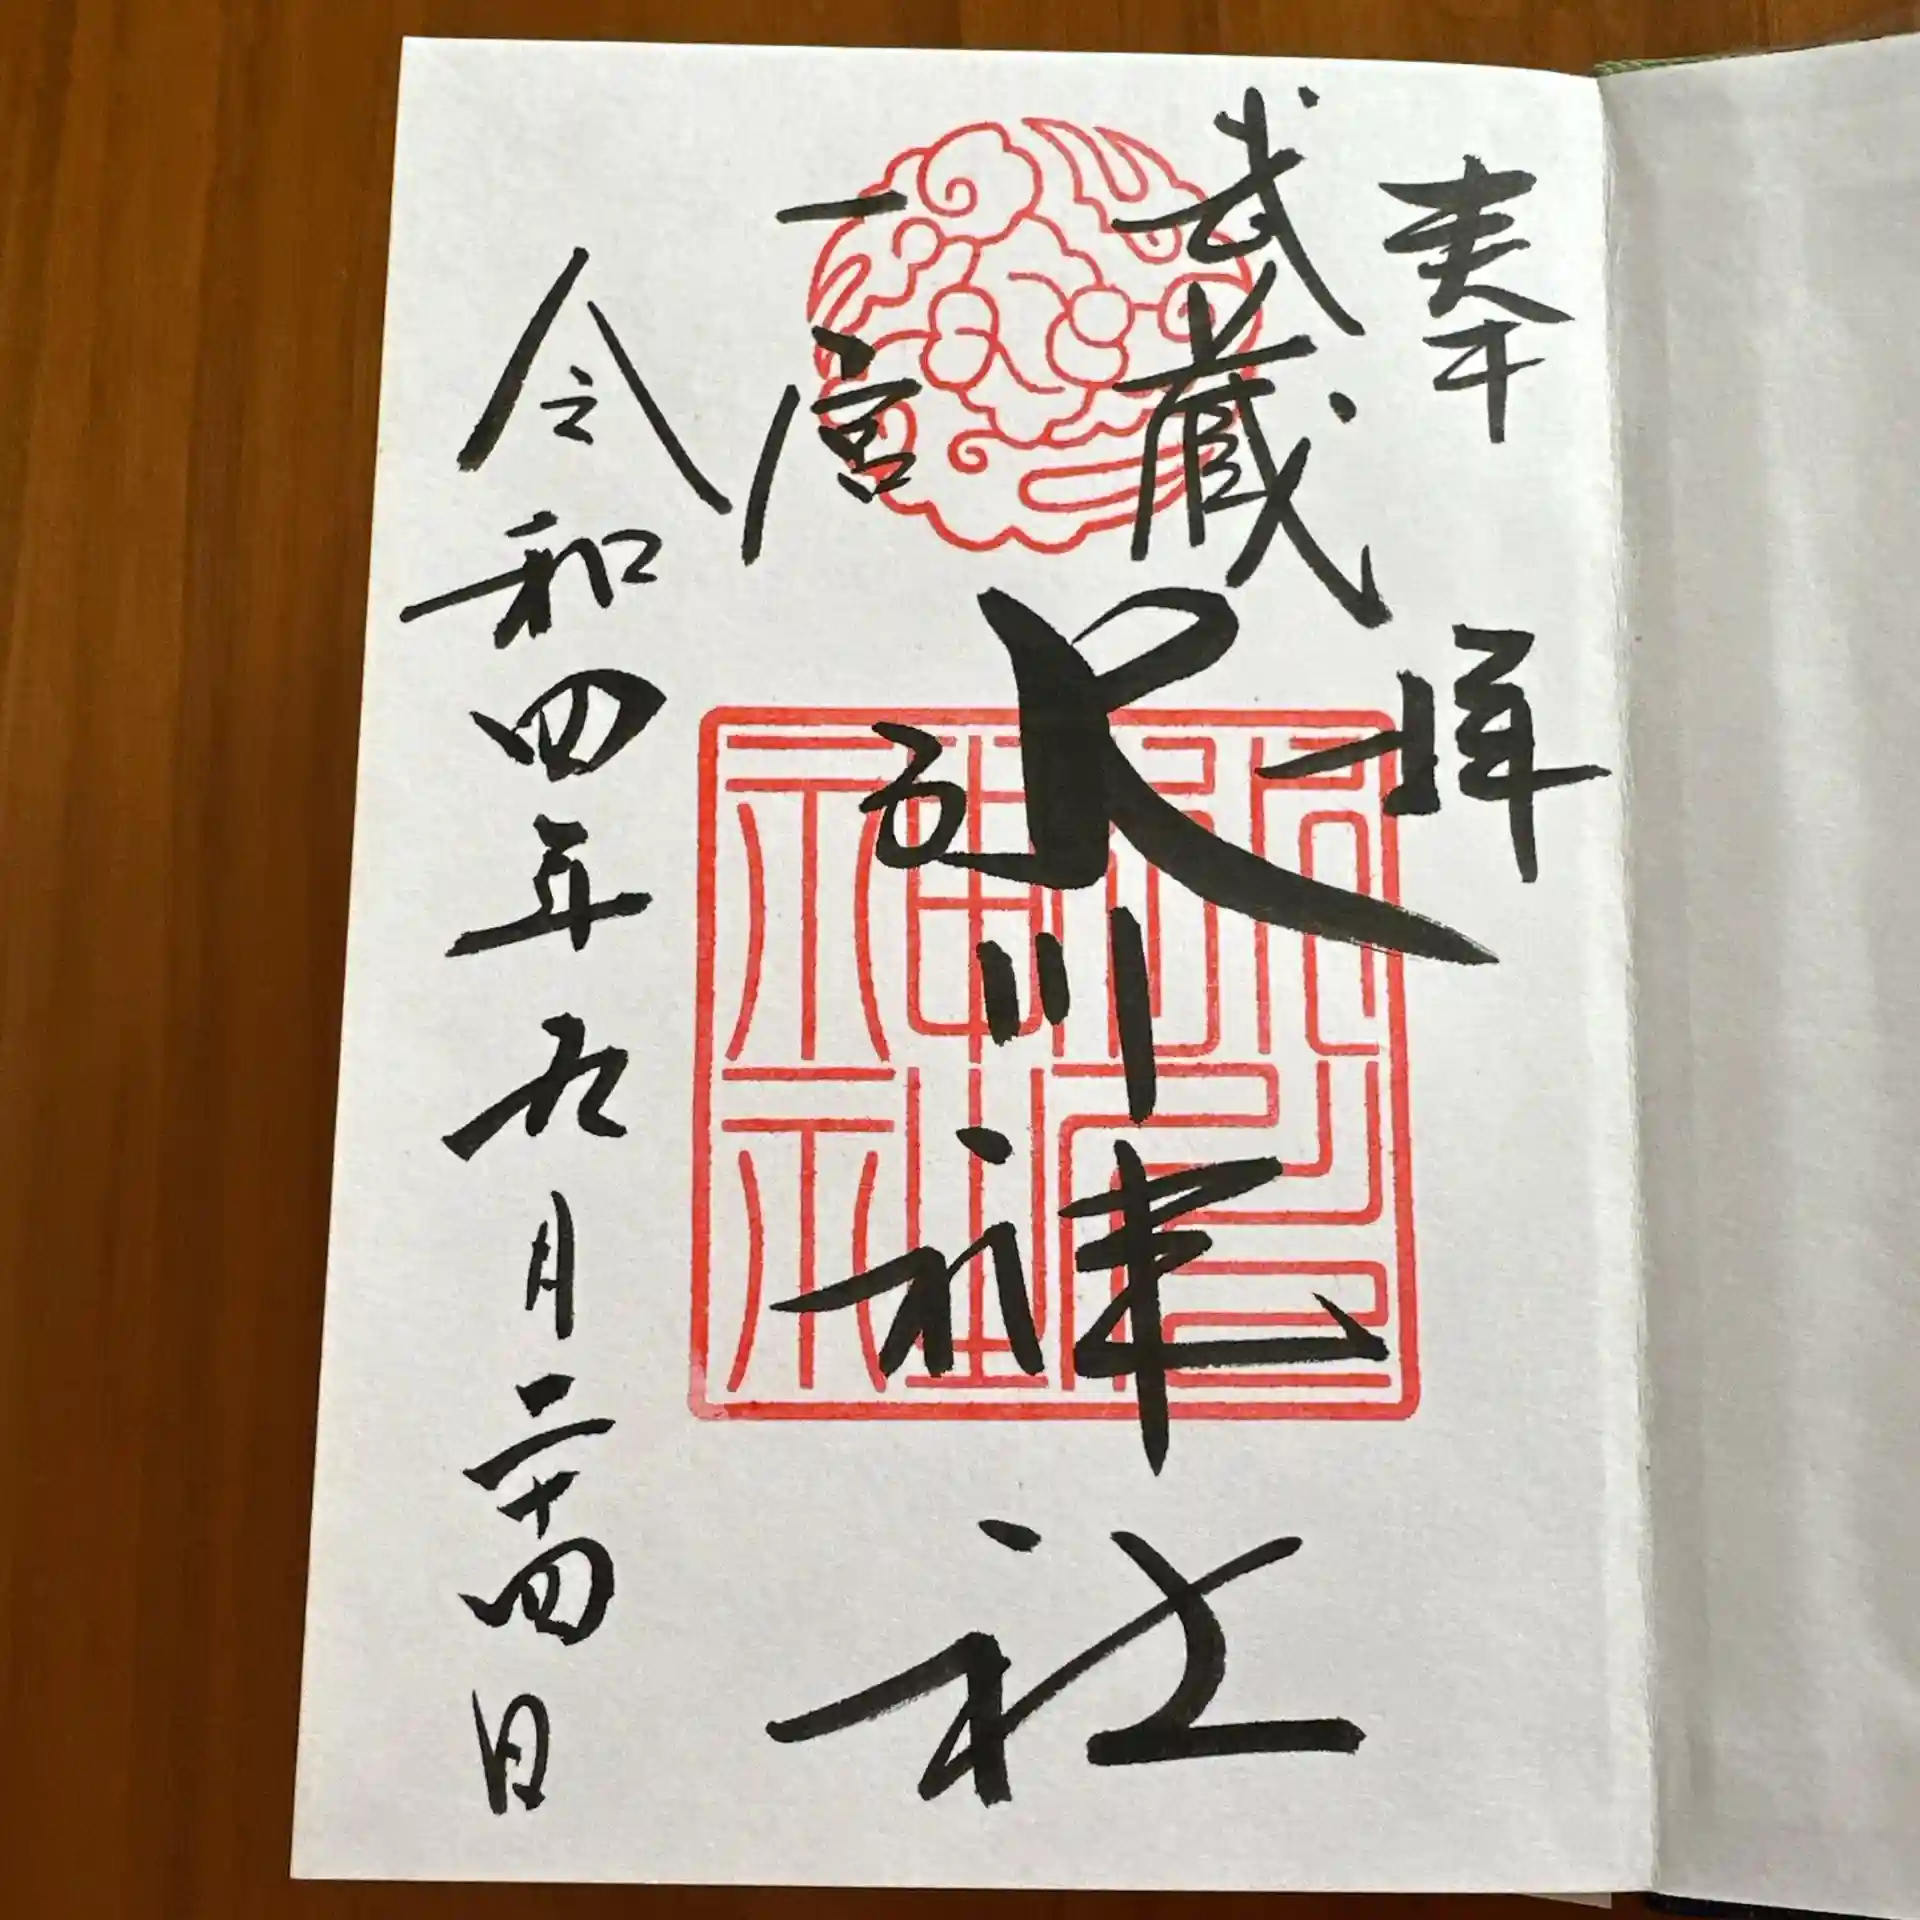 奉拝
武蔵
一宮
氷川神社
令和四年九月二十四日
氷川神社